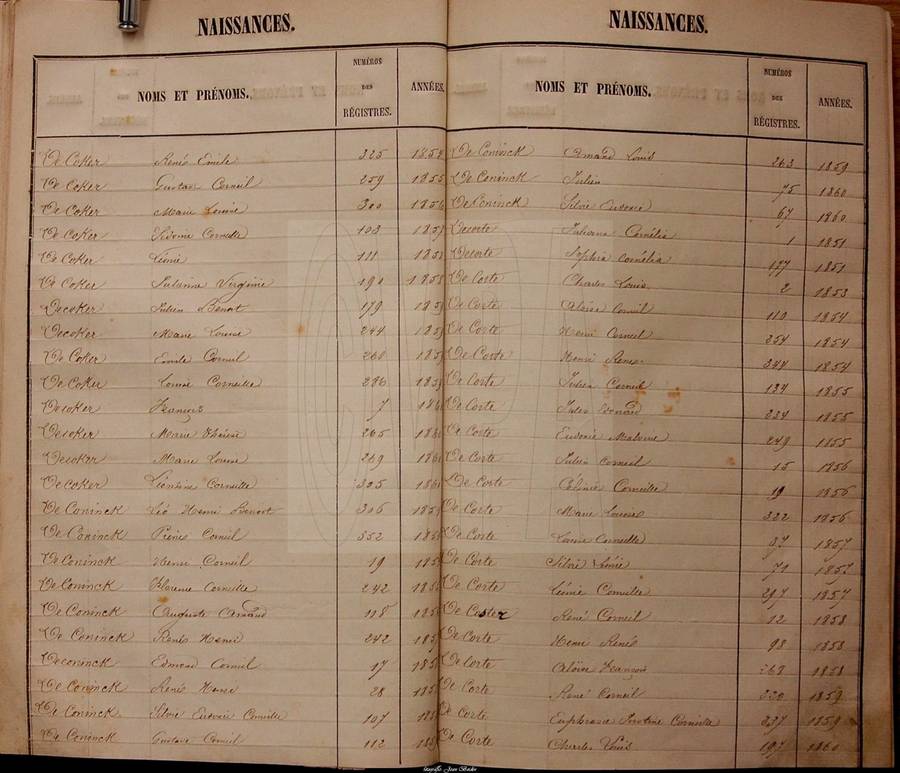 NAISSANCES.
NOMS ET PRÉNOMS. NUMÉROS DES RÉGISTRES. ANNÉES.
De Coker René Emile 325 1854
De Coker Gustave Corneil 259 1855
De Coker Marie Louise 300 1856
De Coker Sidonie Corneille 103
De Coker Léonie 111
De Coker Julianna Virginie 190 1858
Decoker Julien Benoit 179
Decoker Marie Louise 244
De Coker Emile Corneil 260
De Coker Louise Corneille 286
Decoker François 7
Decoker Marie Thérèse 265
Decoker Marie Louise 269
De Coker Léontine Corneille 305
De Coninck Léo Henri Benoit 306
De Coninck Corneil 352
De Coninck Henri Corneil 19
De Coninck Florence Corneille 242
De Coninck Auguste Armand 118
De Coninck René Henri 242
Deconinck Edmond Corneil 17
De Coninck René Henri 28
De Coninck Silvie Eudoxie Corneille 107
De Coninck Gustave Corneil 112
NAISSANCES.
NOMS ET PRÉNOMS. NUMÉROS DES RÉGISTRES. ANNÉES.
De Coninck Armand Louis 263 1859
De Coninck Julien 75 1860
De Coninck Silvie Eudoxie 67 1860
Decorte Juliana Cornélia 1 1851
Decorte Sophia Cornélia 177 1851
De Corte Charles Louis 2 1853
De Corte Aloïse Corneil 110 1854
De Corte Henri Corneil 254 1854
De Corte Henri René 344 1854
De Corte Julien Corneil 134 1855
De Corte Jules Edouard 234 1855
De Corte Eudoxie 249 1855
De Corte Julien Corneil 15 1856
De Corte Corneille 19 1856
De Corte Marie Louise 322 1856
De Corte Corneille 37 1857
De Corte Silvie Léonie 71 1857
De Corte Léonie Corneille 297 1857
De Coster René Corneil 12 1858
De Corte Henri René 98 1858
De Corte Aloïse François 268 1858
De Corte René Corneil 220 1859
De Corte Euphrasie Corneille 237 1859
De Corte Charles Louis 197 1860